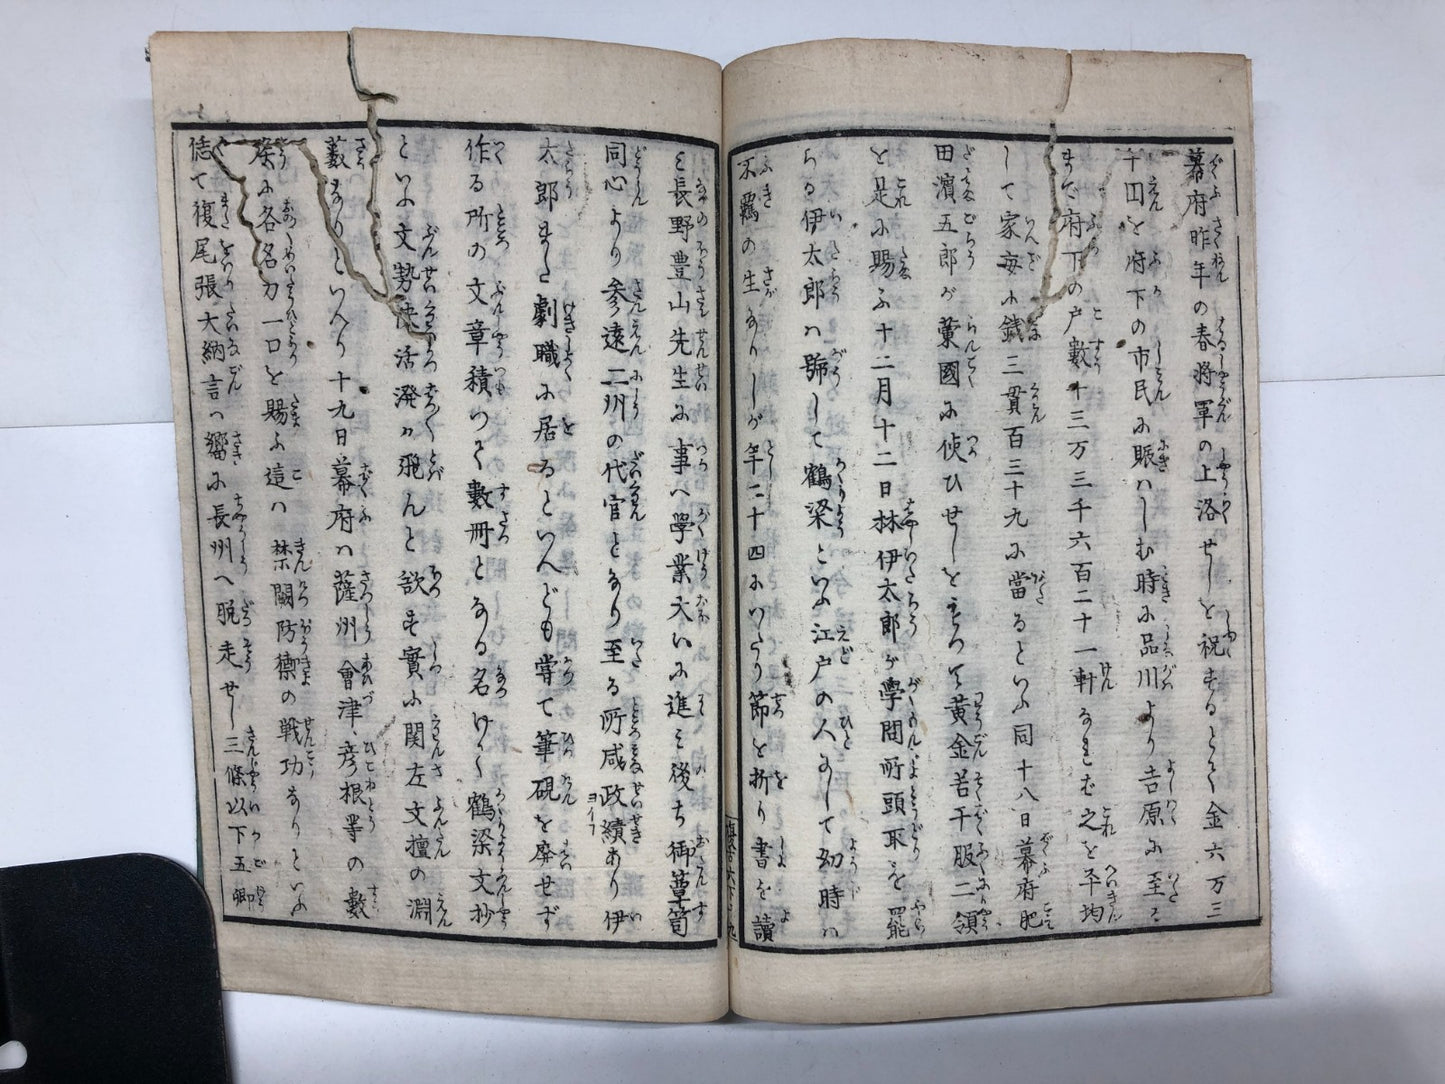 幕府昨年の春将軍の上洛せしを祝するとて金六万三
千両を府下の市民に賑はしむ時に品川より吉原に至る
まで府下の戸数十三万三千六百二十一軒なれば之を平均
して家毎に銭三貫百三十九に當るといふ同十八日幕府肥
田濱五郎が蘭國に使ひせしをもつて黄金若干服二領
を是に賜ふ十二月十二日林伊太郎が學問所頭取を罷
らる伊太郎は號して鶴梁といふ江戸の人にして幼時は
不羈の生なりしが年二十四にいたり節を折り書を讀
み長野豊山先生に事へ學業大いに進み後ち御簞笥
同心より参遠二州の代官となり至る所咸政績あり伊
太郎また劇職に居るといへども嘗て筆硯を廃せず
作る所の文章積りて數冊となる名けて鶴梁文抄
といふ文勢快活溌々飛んと欲す實に関左文壇の淵
藪なりといへり十九日幕府は薩州會津彦根等の數
に各名刀一口を賜ふ這は禁闕防禦の戦功なりといふ
て復尾張大納言は嚮に長州へ脱走せし三條以下五卿